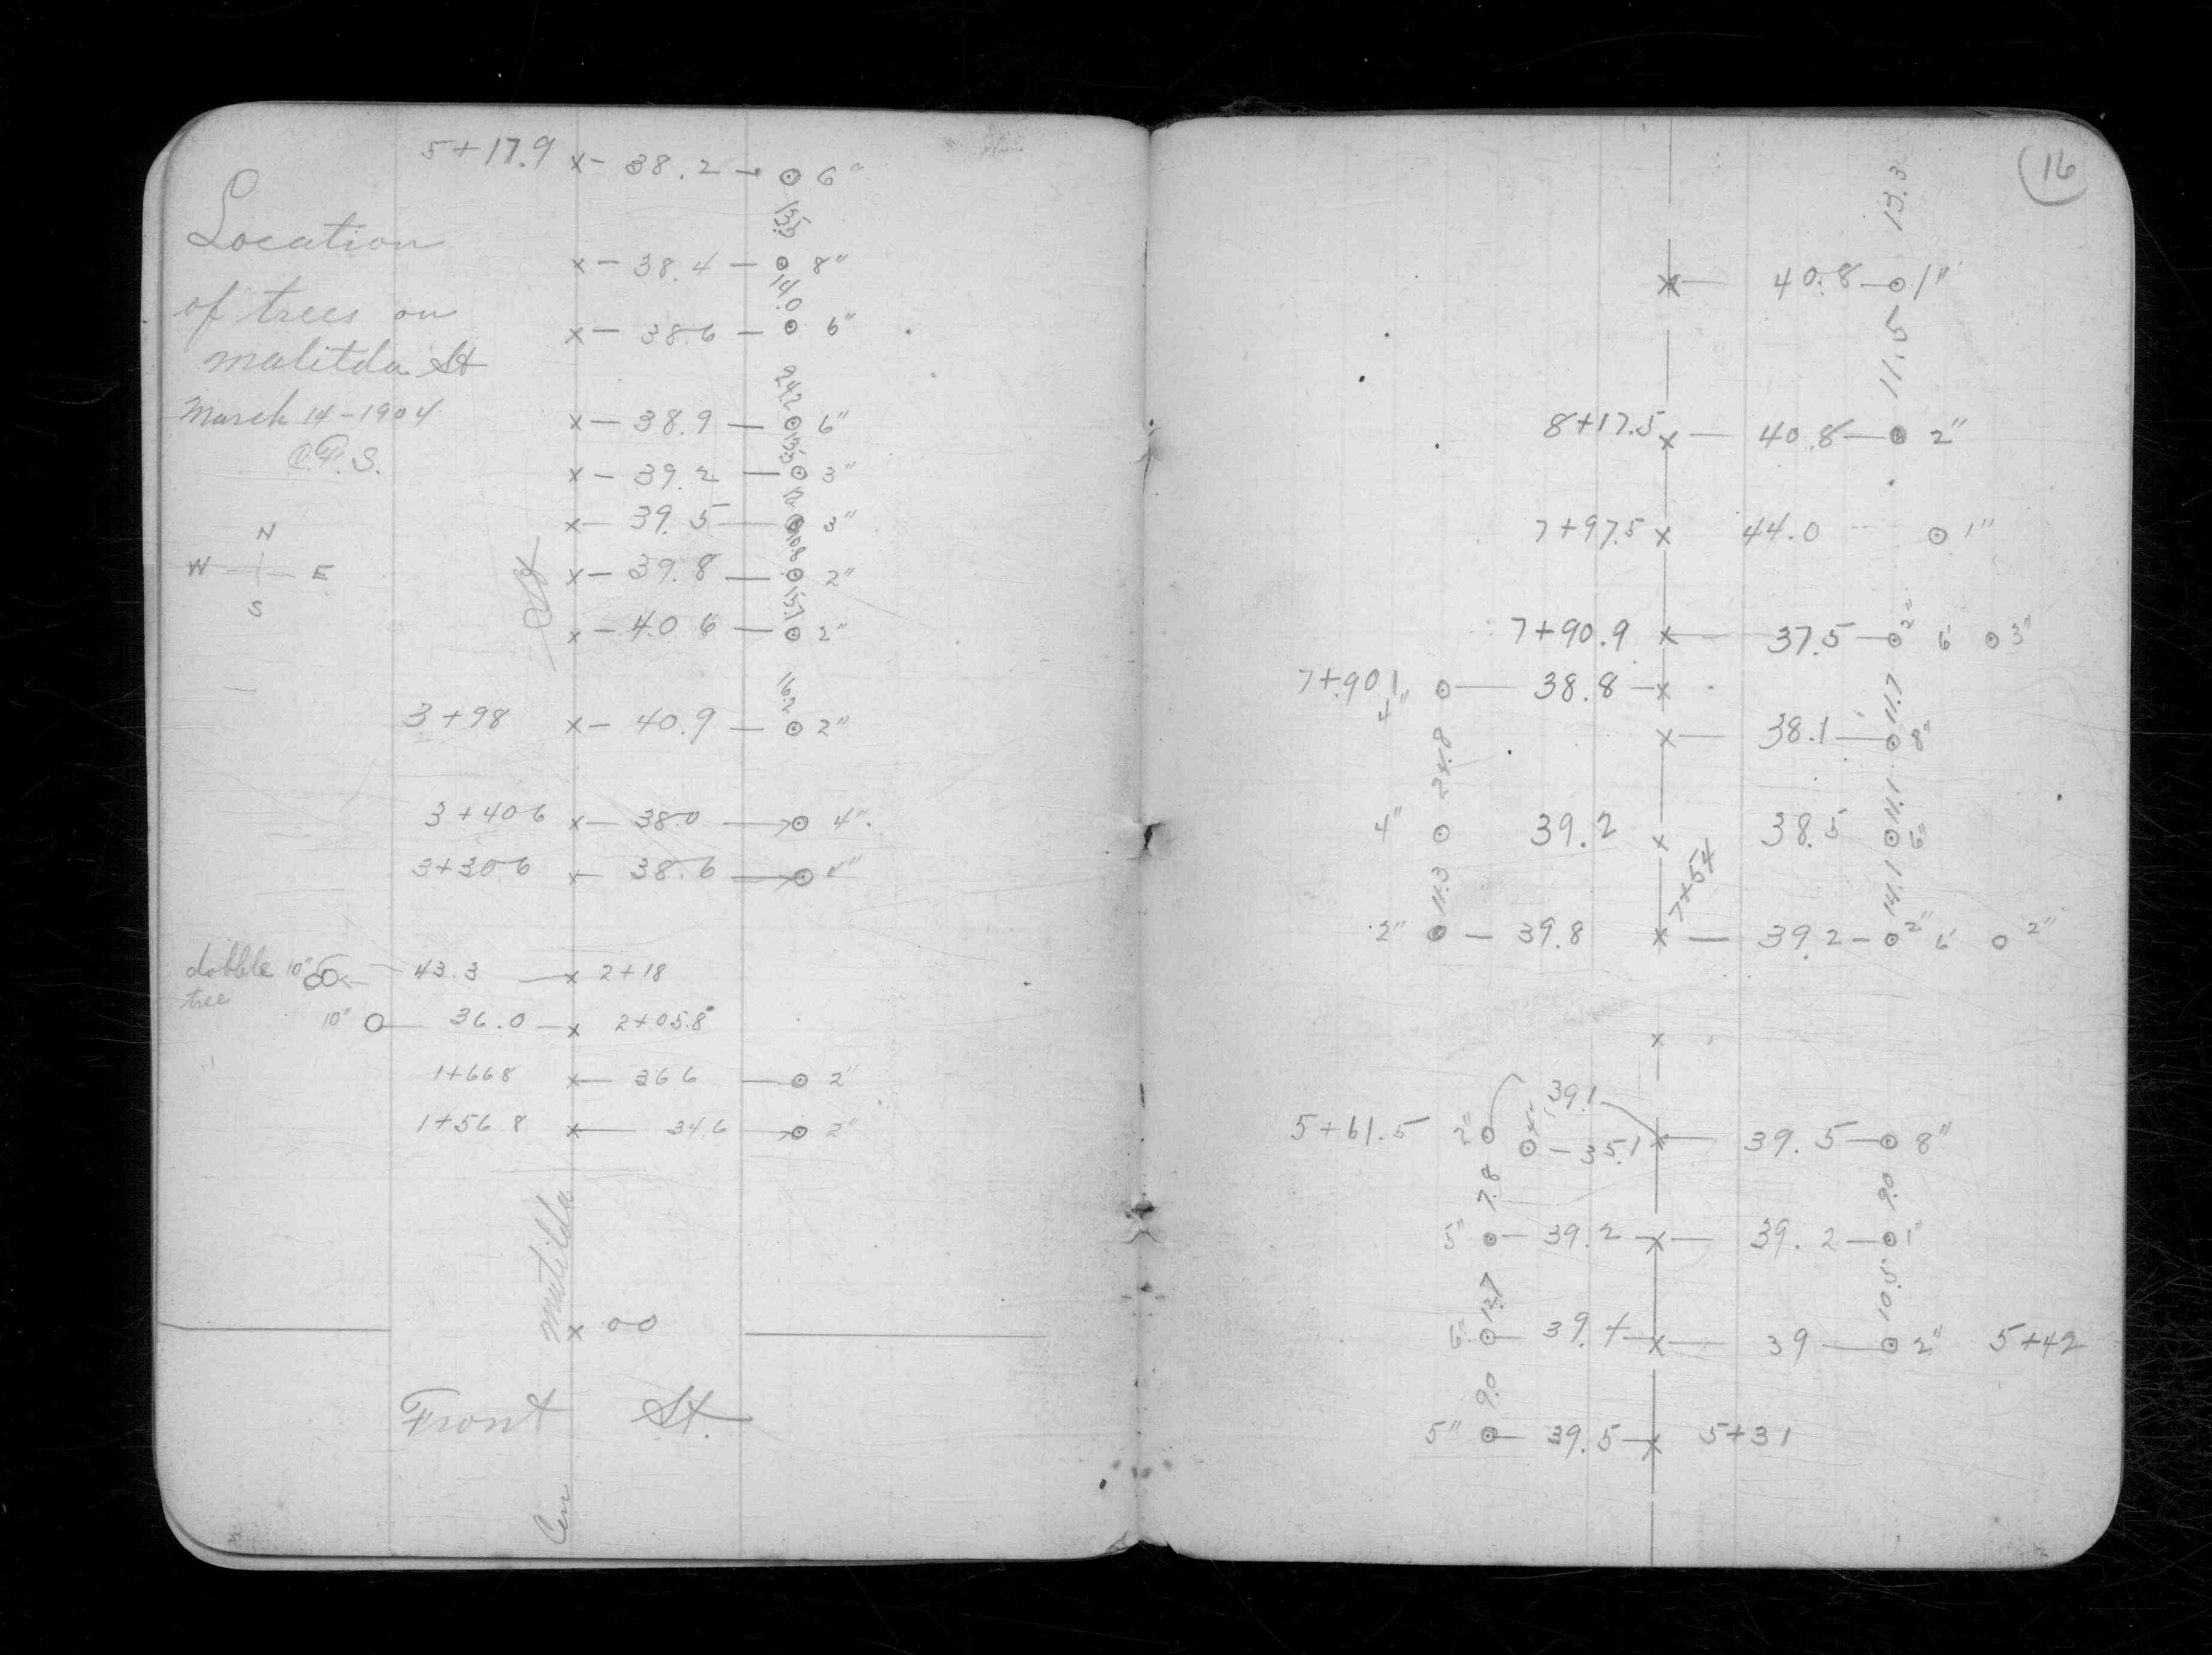 Location
of trees on
malitda St
March 14-1904
N
W E
S
5+17.9 x- 38.2 - ⊙ 6"
13.5
x- 38.4 - ⊙ 8"
14.0
x- 38.6 - ⊙ 6"
24.2
x- 38.9 - ⊙ 6"
x- 39.2 - ⊙ 3"
x- 39.5 - ⊙ 3"
10.8
St x- 39.8 - ⊙ 2"
15.7
x- 40 6 - ⊙ 2"
16.2
3+98 x- 40.9 - ⊙ 2"
3+40 6 x- 38.0 ⊙ 4"
3+30 6 x- 38.6 ⊙
dobble 10" 43.3 - x 2+18
tree
10" O 36.0 - x 2+05.8
1+66 8 x- 36 6 - ⊙ 2"
1+56 8 x- 34.6 ⊙ 2"
matilda
x 00
Front St.
Cen
16
13.3
x- 40.8 - ⊙ 1"
11.5
8+17.5 x - 40.8 - ⊙ 2"
7+97.5 x 44.0 ⊙ 1"
7+90.9 x - 37.5 - ⊙ 2" 6' ⊙ 3"
7+.90 1 4" ⊙ - 38.8 - x
11.7
x- 38.1 - ⊙ 8"
24.8 11.1
4" ⊙ 39.2 x 38.5 ⊙ 6"
11.3 7+54 14.1
2" ⊙ - 39.8 x - 39.2 - ⊙ 2" 6' O 2"
x
39.1
5+61.5 2" ⊙ ⊙ - 35.1 x- 39.5 - ⊙ 8"
7.8 9.0
5" ⊙ - 39.2 - x - 39.2 - ⊙ 1"
12.7 10.5
6" ⊙ - 39.4 - x - 39 - ⊙ 2" 5+42
9.0
5" ⊙ - 39.5 - x 5+31